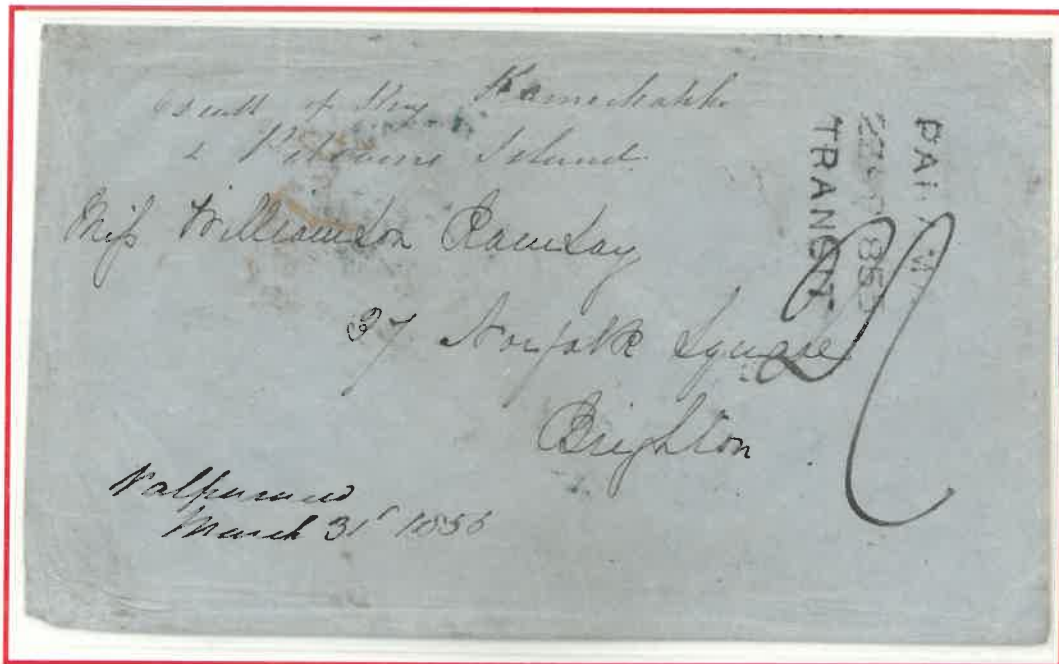 of Kamschatka
& Pitcairns Island
Miss Williamson Ramsay
37 Norfolk Square
Brighton
Valparaiso
March 31st 1855
PAI
185
TRANSIT